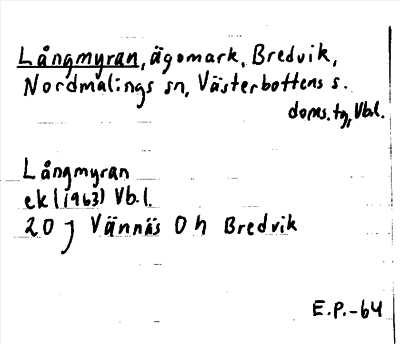 Långmyran, ägomark, Bredvik,
Nordmalings sn, Västerbottens s.
doms. tg, Vbl.
Långmyran
ek (1963) Vb.l.
20 J Vännäs 0 h Bredvik
E.P.-64